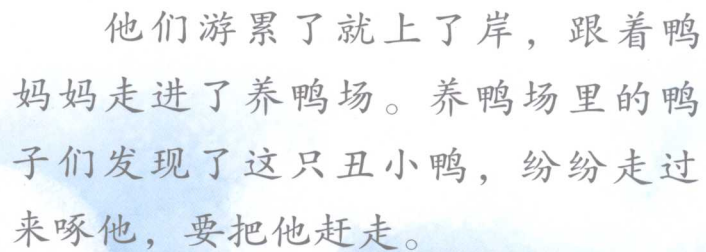 他们游累了就上了岸，跟着鸭
妈妈走进了养鸭场。养鸭场里的鸭
子们发现了这只丑小鸭，纷纷走过
来啄他，要把他赶走。